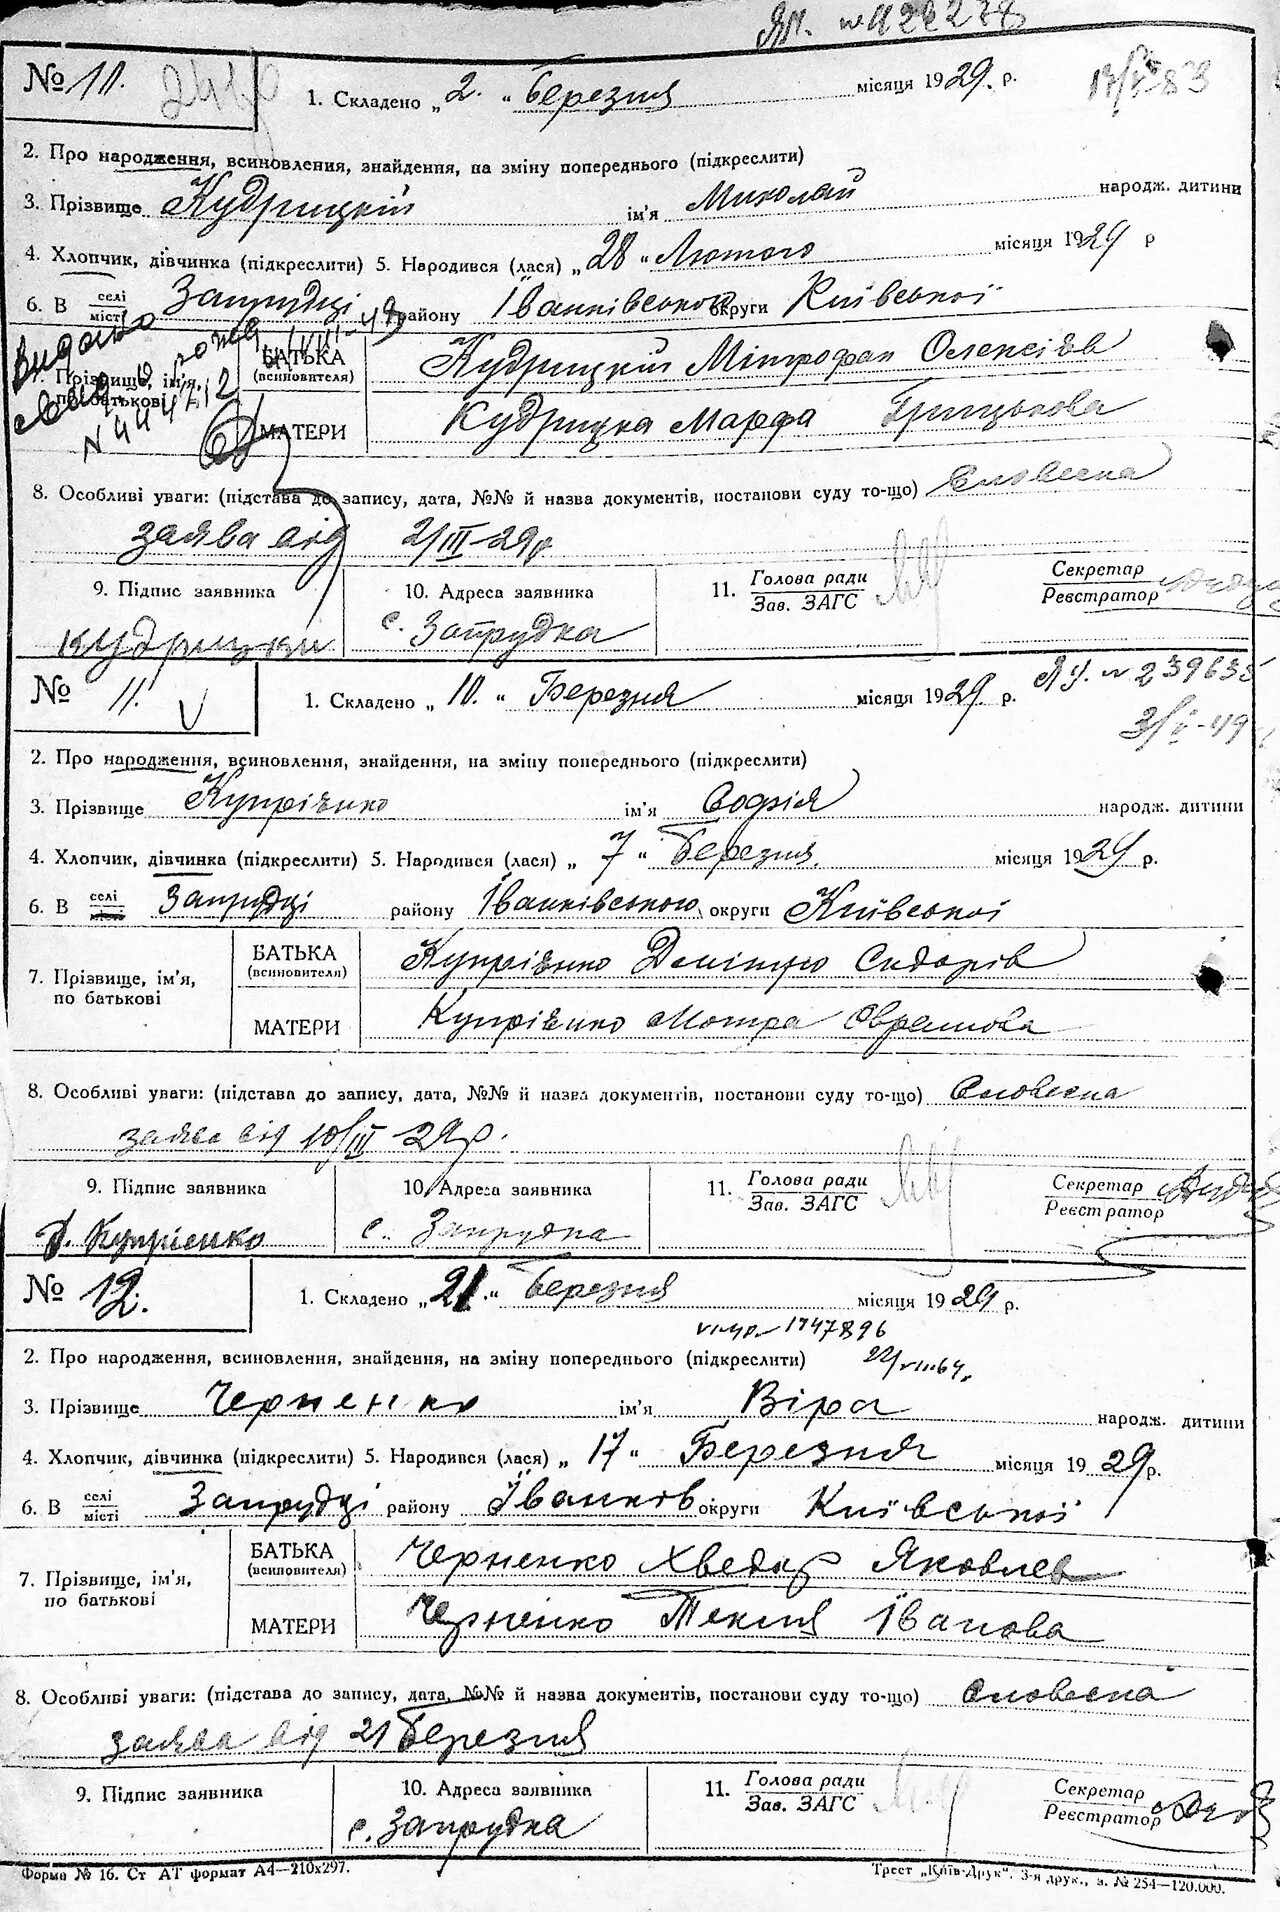 ЯП. № 422278
№ 11.
1. Складено „2.“ Березня місяця 1929. р.
2. Про народження, всиновлення, знайдення, на зміну попереднього (підкреслити)
3. Прізвище Кудрицкій ім'я Миколай народж. дитини
4. Хлопчик, дівчинка (підкреслити) 5. Народився (лася) „28“ Лютого місяця 1929 р
6. В селі місті Запрудці району Іванківського округи Київської
Видано
N 444712
7. Прізвище, ім'я, по батькові
БАТЬКА (всиновителя) Кудрицкій Мітрофан Олексіїв
МАТЕРИ Кудрицка Марфа Грицькова
8. Особливі уваги: (підстава до запису, дата, №№ й назва документів, постанови суду то-що) Словесна
заява від 2/III-29р
9. Підпис заявника
10. Адреса заявника
11. Голова ради
Зав. ЗАГС
Секретар
Реєстратор
Кудрицки
с. Запрудка
№ 11. V
1. Складено „10.“ Березня місяця 1929. р.
ЯУ. № 239635
2. Про народження, всиновлення, знайдення, на зміну попереднього (підкреслити)
3. Прізвище Купріѣнко ім'я Софія народж. дитини
4. Хлопчик, дівчинка (підкреслити) 5. Народився (лася) „7“ Березня. місяця 1929 р.
6. В селі місті Запрудці району Іванківського округи Київської
7. Прізвище, ім'я, по батькові
БАТЬКА (всиновителя) Купріѣнко Дмітро Сидорів
МАТЕРИ Купріѣнко Мотра Оврамова
8. Особливі уваги: (підстава до запису, дата, №№ й назва документів, постанови суду то-що) Словесна
заява від 10/III 29р.
9. Підпис заявника
10. Адреса заявника
11. Голова ради
Зав. ЗАГС
Секретар
Реєстратор
Д. Купріенко
с. Запрудка
№ 12.
1. Складено „21.“ Березня місяця 1929 р.
1747896
22/VIII64.
2. Про народження, всиновлення, знайдення, на зміну попереднього (підкреслити)
3. Прізвище Черненко ім'я Віра народж. дитини
4. Хлопчик, дівчинка (підкреслити) 5. Народився (лася) „17“ Березня місяця 1929 р.
6. В селі місті Запрудці району Іванків. округи Київської
7. Прізвище, ім'я, по батькові
БАТЬКА (всиновителя) Черненко Хведор Яковлев
МАТЕРИ Черненко Текля Іванова
8. Особливі уваги: (підстава до запису, дата, №№ й назва документів, постанови суду то-що) Словесна
заява від 21 Березня
9. Підпис заявника
10. Адреса заявника
11. Голова ради
Зав. ЗАГС
Секретар
Реєстратор
с. Запрудка
Форма № 16. Ст АТ формат А4—210х297.
Трест „Київ-Друк“. 3-я друк., з. № 254—120.000.